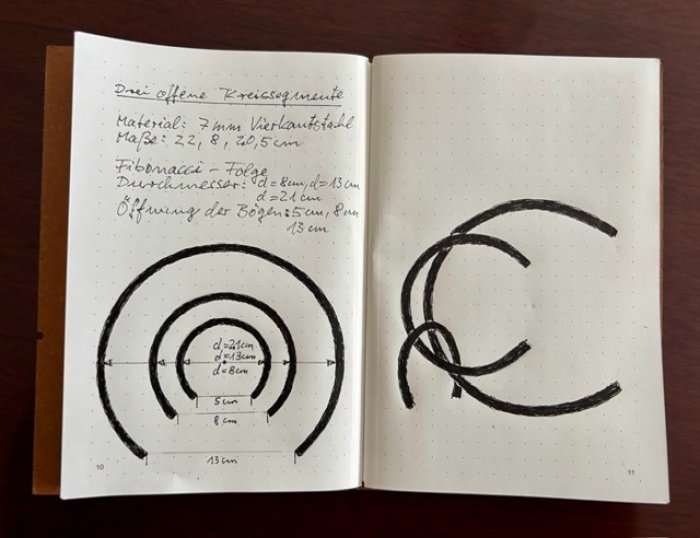 Drei offene Kreissegmente
Material: 7 mm Vierkantstahl
Maße: 22, 8, 20,5 cm
Fibonacci - Folge
Durchmesser: d = 8 cm, d = 13 cm
d = 21 cm
Öffnung der Bögen: 5 cm, 8 cm
13 cm
d = 21 cm
d = 13 cm
d = 8 cm
5 cm
8 cm
13 cm
10
11